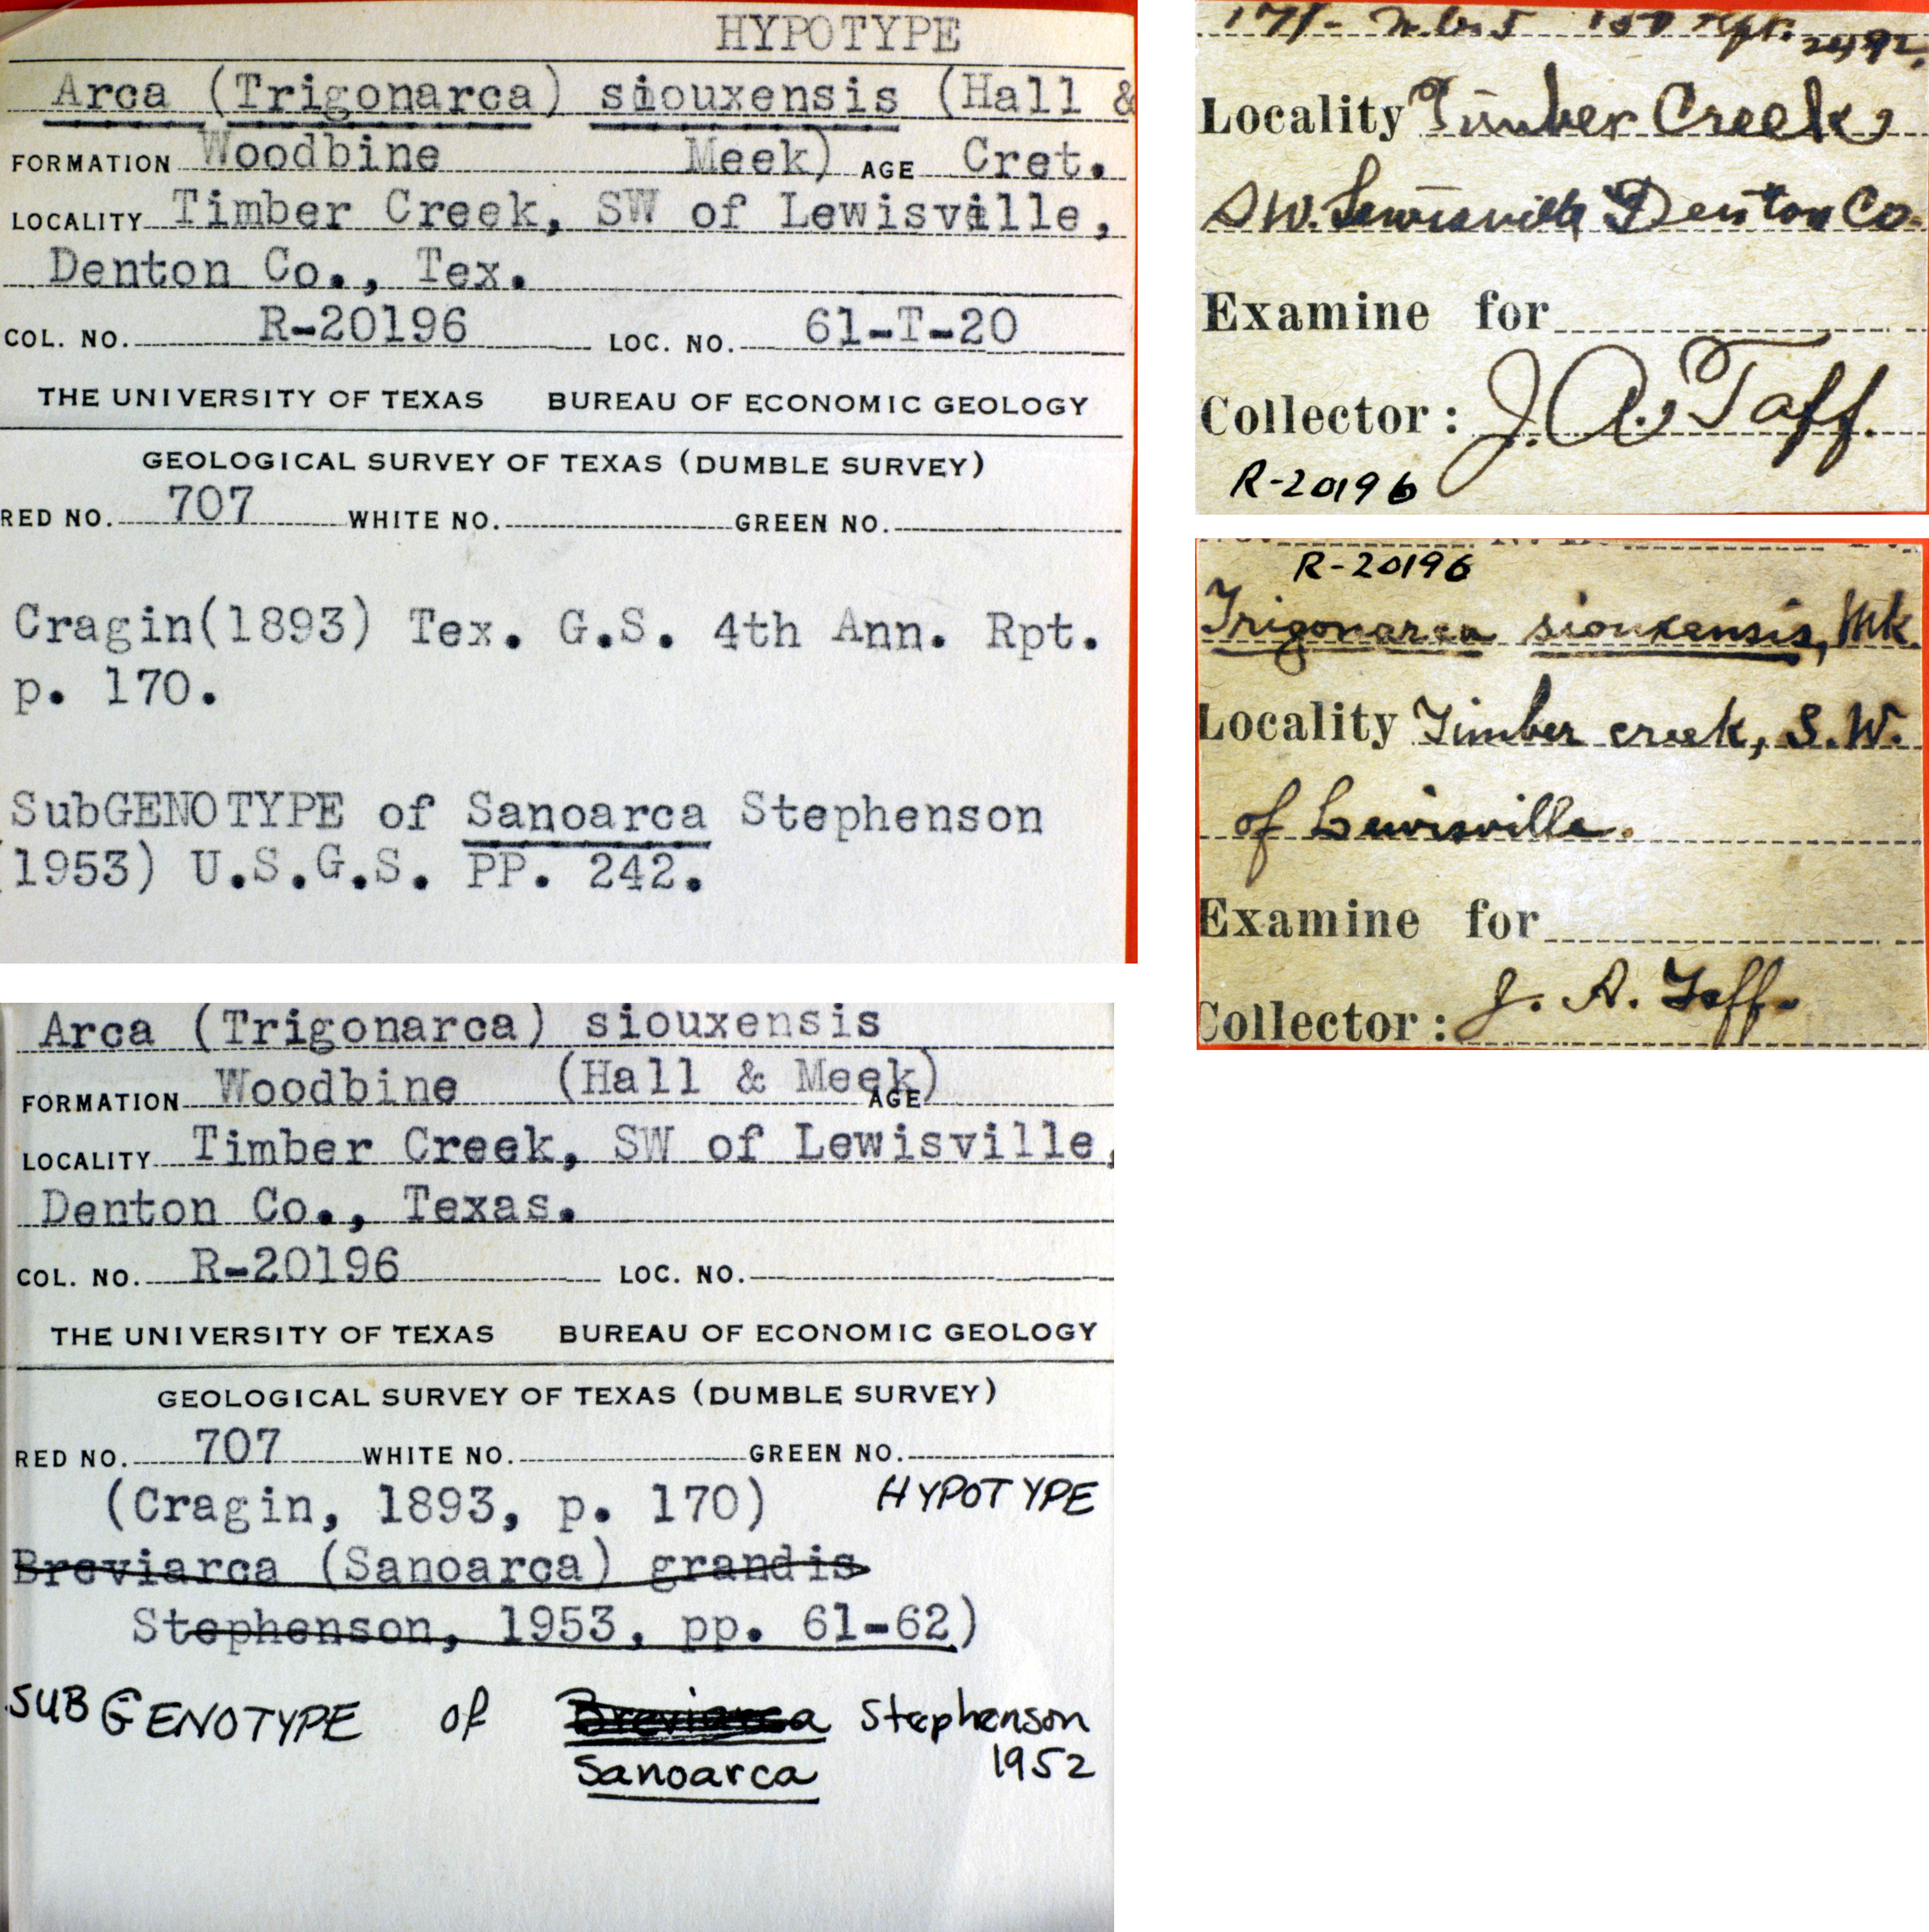 HYPOTYPE
Arca (Trigonarca) siouxensis (Hall &
FORMATION Woodbine Meek) AGE Cret.
LOCALITY Timber Creek, SW of Lewisville,
Denton Co., Tex.
COL. NO. R-20196 LOC. NO. 61-T-20
THE UNIVERSITY OF TEXAS BUREAU OF ECONOMIC GEOLOGY
GEOLOGICAL SURVEY OF TEXAS (DUMBLE SURVEY)
RED NO. 707 WHITE NO. GREEN NO.
Cragin(1893) Tex. G.S. 4th Ann. Rpt.
p. 170.
SubGENOTYPE of Sanoarca Stephenson
1953) U.S.G.S. PP. 242.
Arca (Trigonarca) siouxensis
FORMATION Woodbine (Hall & Meek) AGE
LOCALITY Timber Creek, SW of Lewisville,
Denton Co., Texas.
COL. NO. R-20196 LOC. NO.
THE UNIVERSITY OF TEXAS BUREAU OF ECONOMIC GEOLOGY
GEOLOGICAL SURVEY OF TEXAS (DUMBLE SURVEY)
RED NO. 707 WHITE NO. GREEN NO.
(Cragin, 1893, p. 170) HYPOTYPE
Breviarca (Sanoarca) grandis
Stephenson, 1953, pp. 61-62)
SUBGENOTYPE of Breviarca Stephenson
Sanoarca 1952
Locality Timber Creek,
SW. Lewisville Denton Co.
Examine for
Collector: J. A. Taff.
R-20196
R-20196
Trigonarca siouxensis, Mk.
Locality Timber creek, S.W.
of Lewisville.
Examine for
Collector: J. A. Taff.